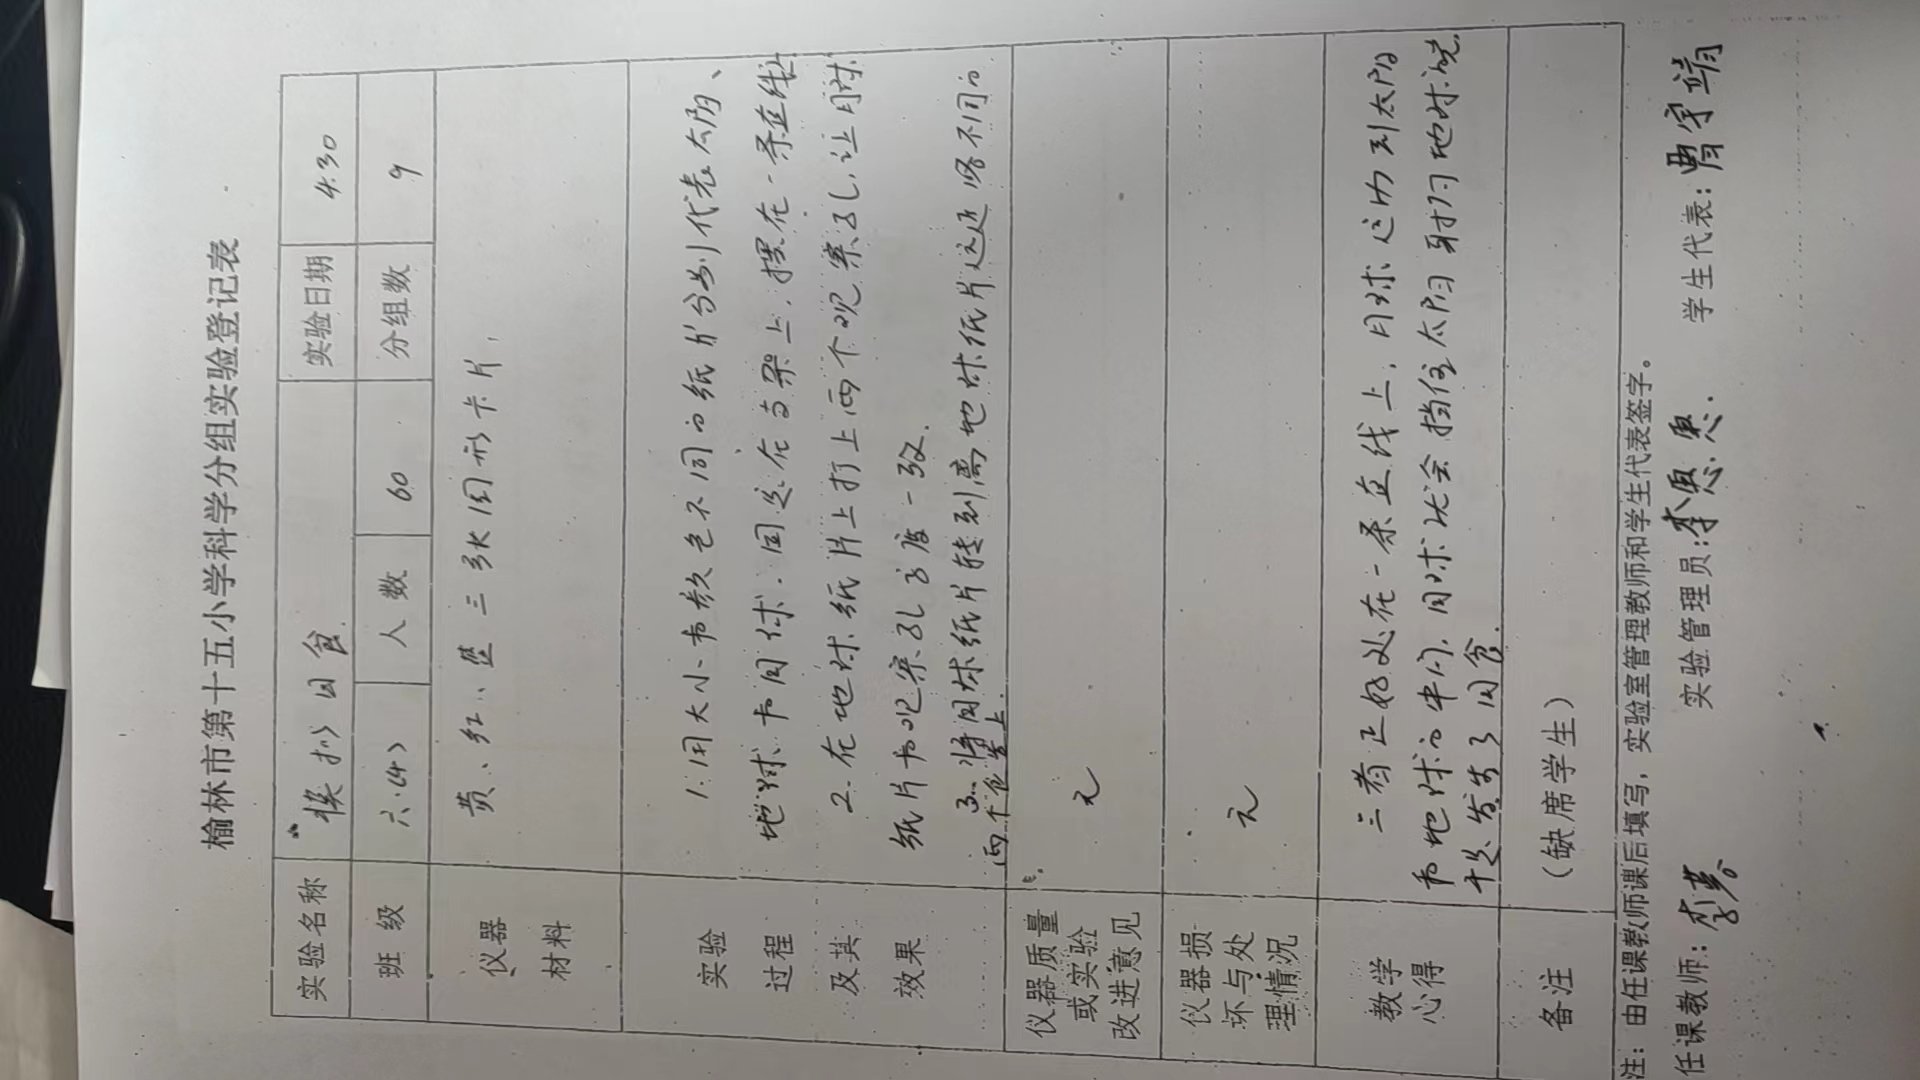 榆林市第十五小学科学分组实验登记表
实验名称 模拟日食 实验日期 4.30
班级 六.(4) 人数 60 分组数 9
仪器
材料
黄、红、蓝三张圆形卡片,
实验
过程
及其
效果
1.用大小和颜色不同的纸片分别代表太阳、
地球和月球.固定在支架上.摆在一条直线上
2.在地球纸片上打上两个观察孔,让月球
纸片和观察孔高度一致.
3.将月球纸片转到离地球纸片远近略不同的
两个位置上
仪器质量
或实验
改进意见
无
仪器损
坏与处
理情况
无
教学
心得
三者正好处在一条直线上,月球运动到太阳
和地球的中间,月球就会挡住太阳射到地球的光.
于是发生了日食.
备注
(缺席学生)
注:由任课教师课后填写,实验室管理教师和学生代表签字。
任课教师: 李 实验管理员:李恩惠. 学生代表:曹宇靖